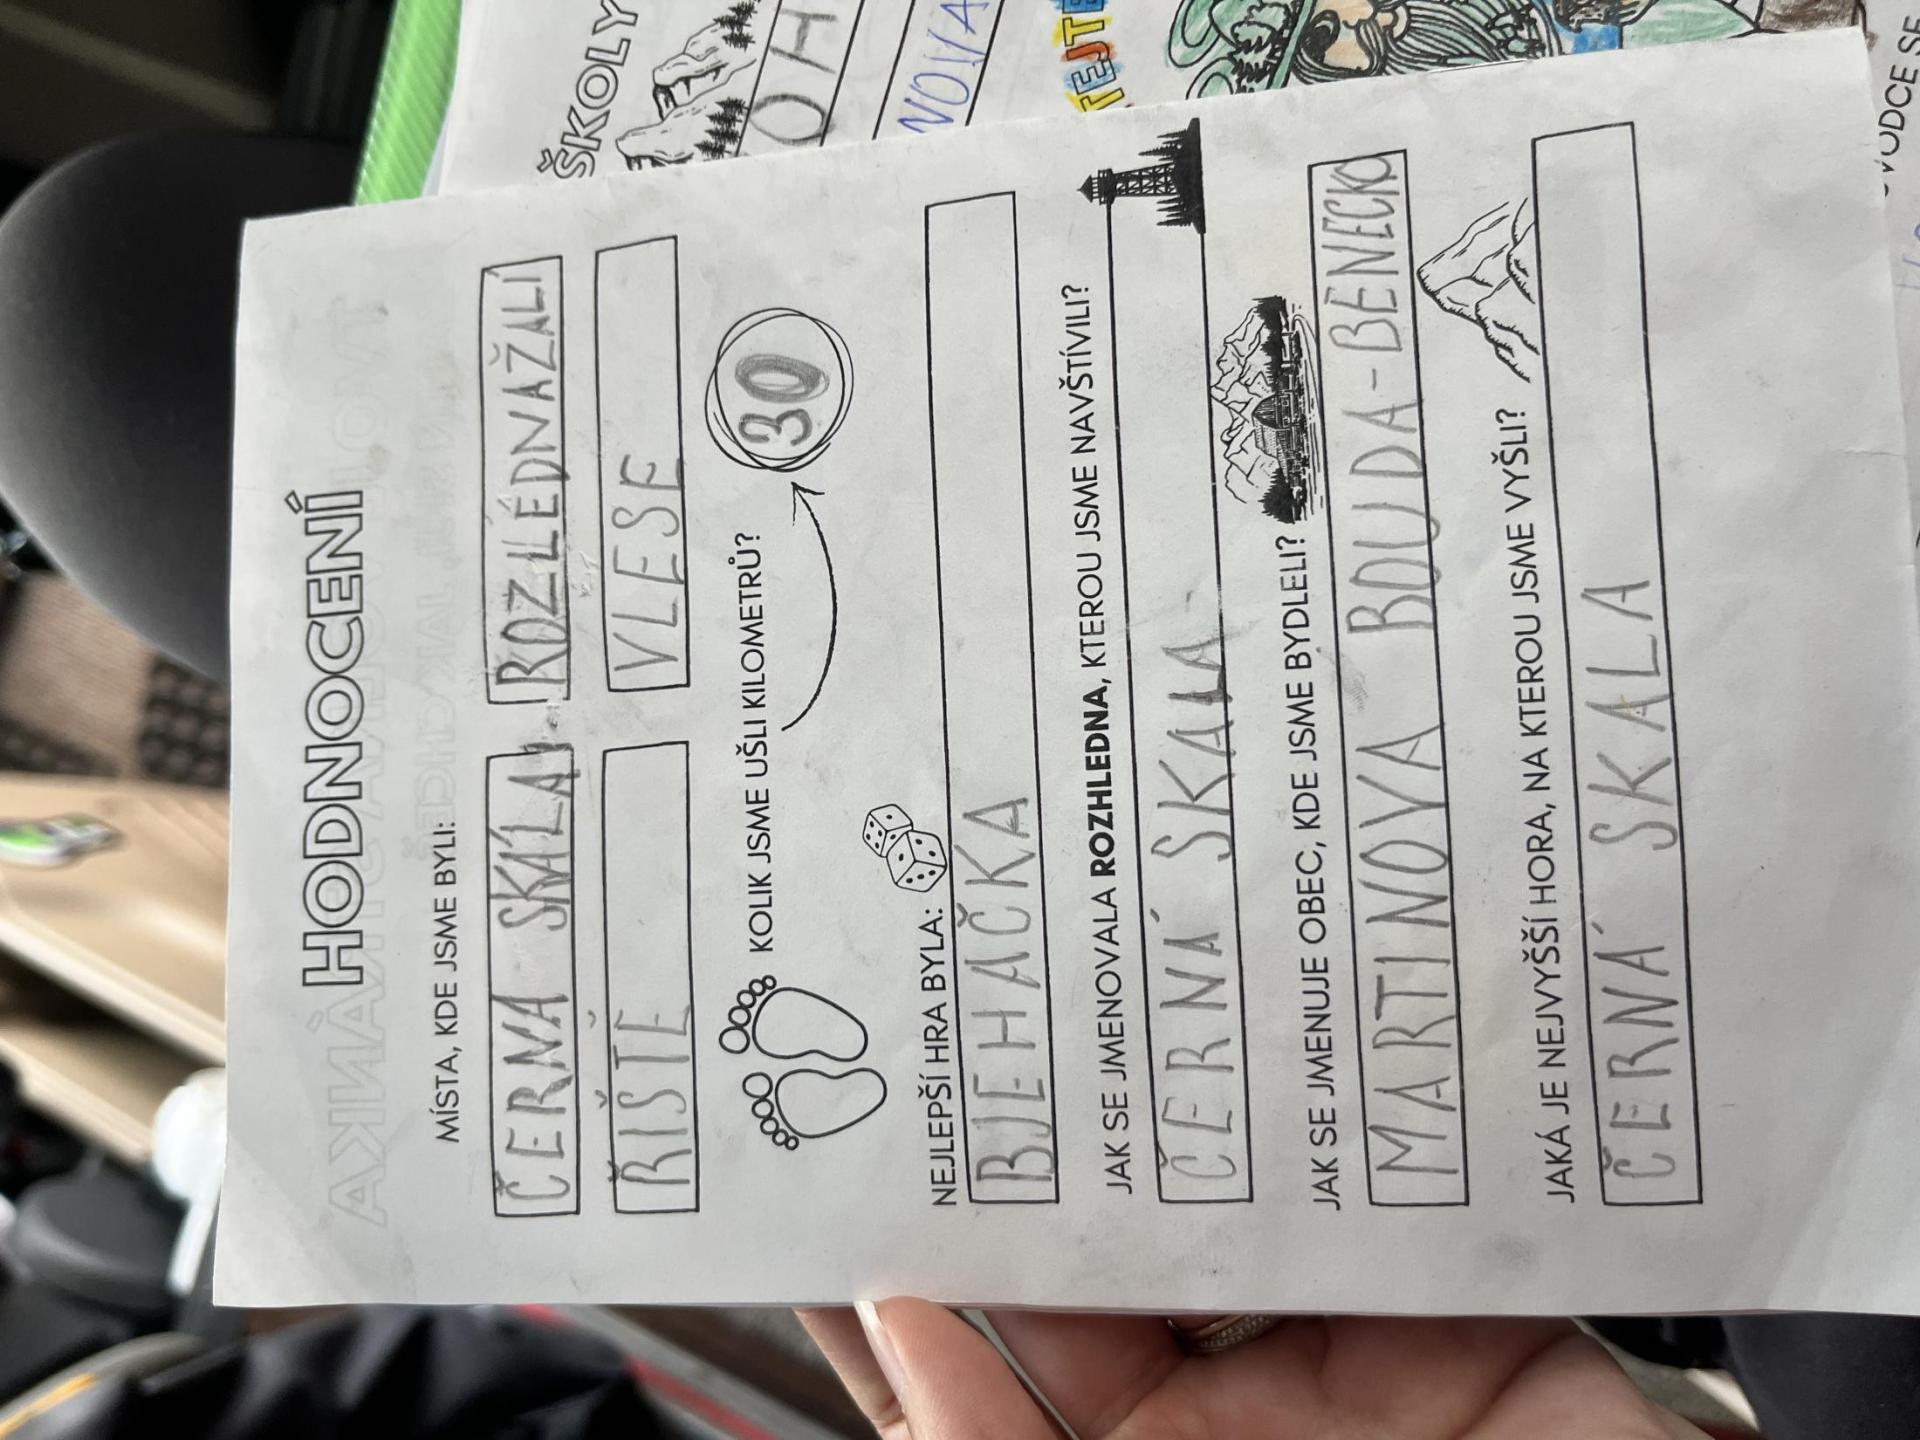 HODNOCENÍ
MÍSTA, KDE JSME BYLI:
ČERNA SKÁLA ROZLÉDNAŽALÍ
ŘIŠTĚ VLESE
KOLIK JSME UŠLI KILOMETRŮ?
30
NEJLEPŠÍ HRA BYLA:
BJEHAČKA
JAK SE JMENOVALA ROZHLEDNA, KTEROU JSME NAVŠTÍVILI?
ČERNÁ SKALA
JAK SE JMENUJE OBEC, KDE JSME BYDLELI?
MARTINOVA BOUDA-BENECKO
JAKÁ JE NEJVYŠŠÍ HORA, NA KTEROU JSME VYŠLI?
ČERNÁ SKALA
ŠKOLY